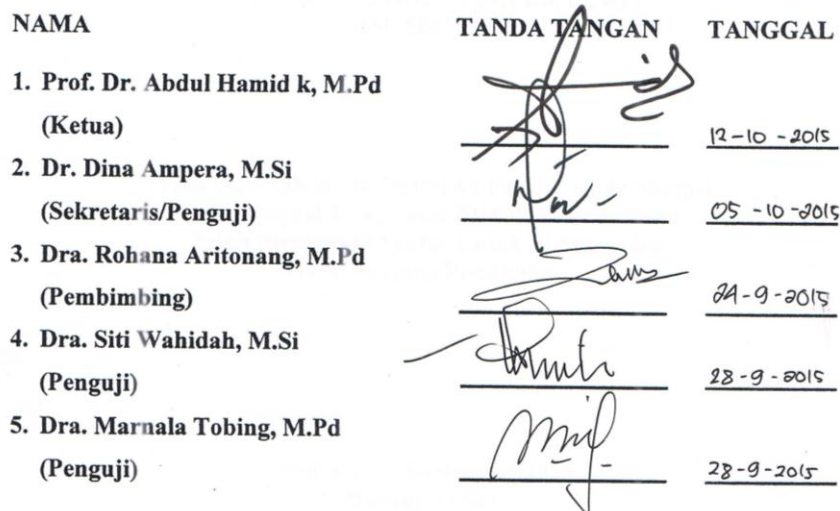 NAMA TANDA TANGAN TANGGAL
1. Prof. Dr. Abdul Hamid k, M.Pd
(Ketua) 12-10-2015
2. Dr. Dina Ampera, M.Si
(Sekretaris/Penguji) 05-10-2015
3. Dra. Rohana Aritonang, M.Pd
(Pembimbing) 24-9-2015
4. Dra. Siti Wahidah, M.Si
(Penguji) 28-9-2015
5. Dra. Marnala Tobing, M.Pd
(Penguji) 28-9-2015